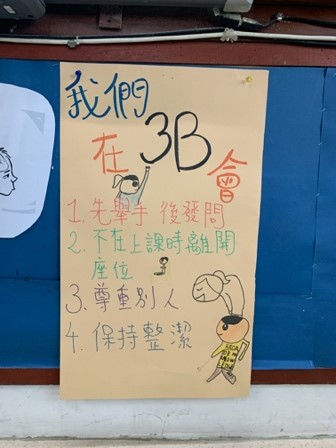 我們
在 3B 會
1. 先舉手 後發問
2. 不在上課時離開
座位
3. 尊重別人
4. 保持整潔